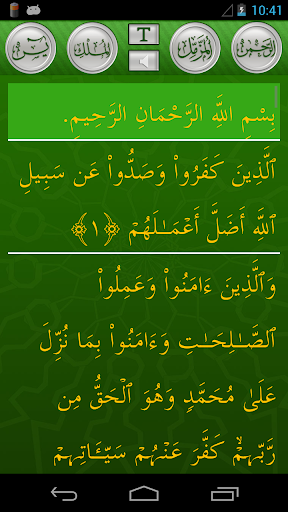 10:41
يس الملك T المزمل الرحمن
بِسْمِ اللَّهِ الرَّحْمَانِ الرَّحِيمِ.
ٱلَّذِينَ كَفَرُوا۟ وَصَدُّوا۟ عَن سَبِيلِ
ٱللَّهِ أَضَلَّ أَعْمَـٰلَهُمْ ﴿١﴾
وَٱلَّذِينَ ءَامَنُوا۟ وَعَمِلُوا۟
ٱلصَّـٰلِحَـٰتِ وَءَامَنُوا۟ بِمَا نُزِّلَ
عَلَىٰ مُحَمَّدٍۢ وَهُوَ ٱلْحَقُّ مِن
رَّبِّهِمْ كَفَّرَ عَنْهُمْ سَيِّـَٔاتِهِمْ